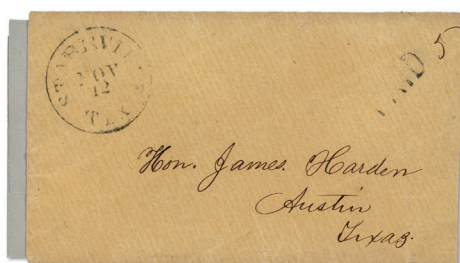 STARRVILLE
NOV
12
TEX
PAID 5
Hon. James. Harden
Austin
Texas.